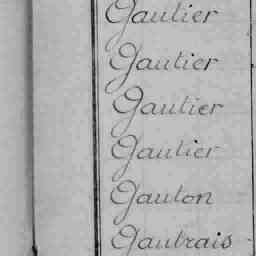 Gautier
Gautier
Gautier
Gautier
Gauton
Gautrais